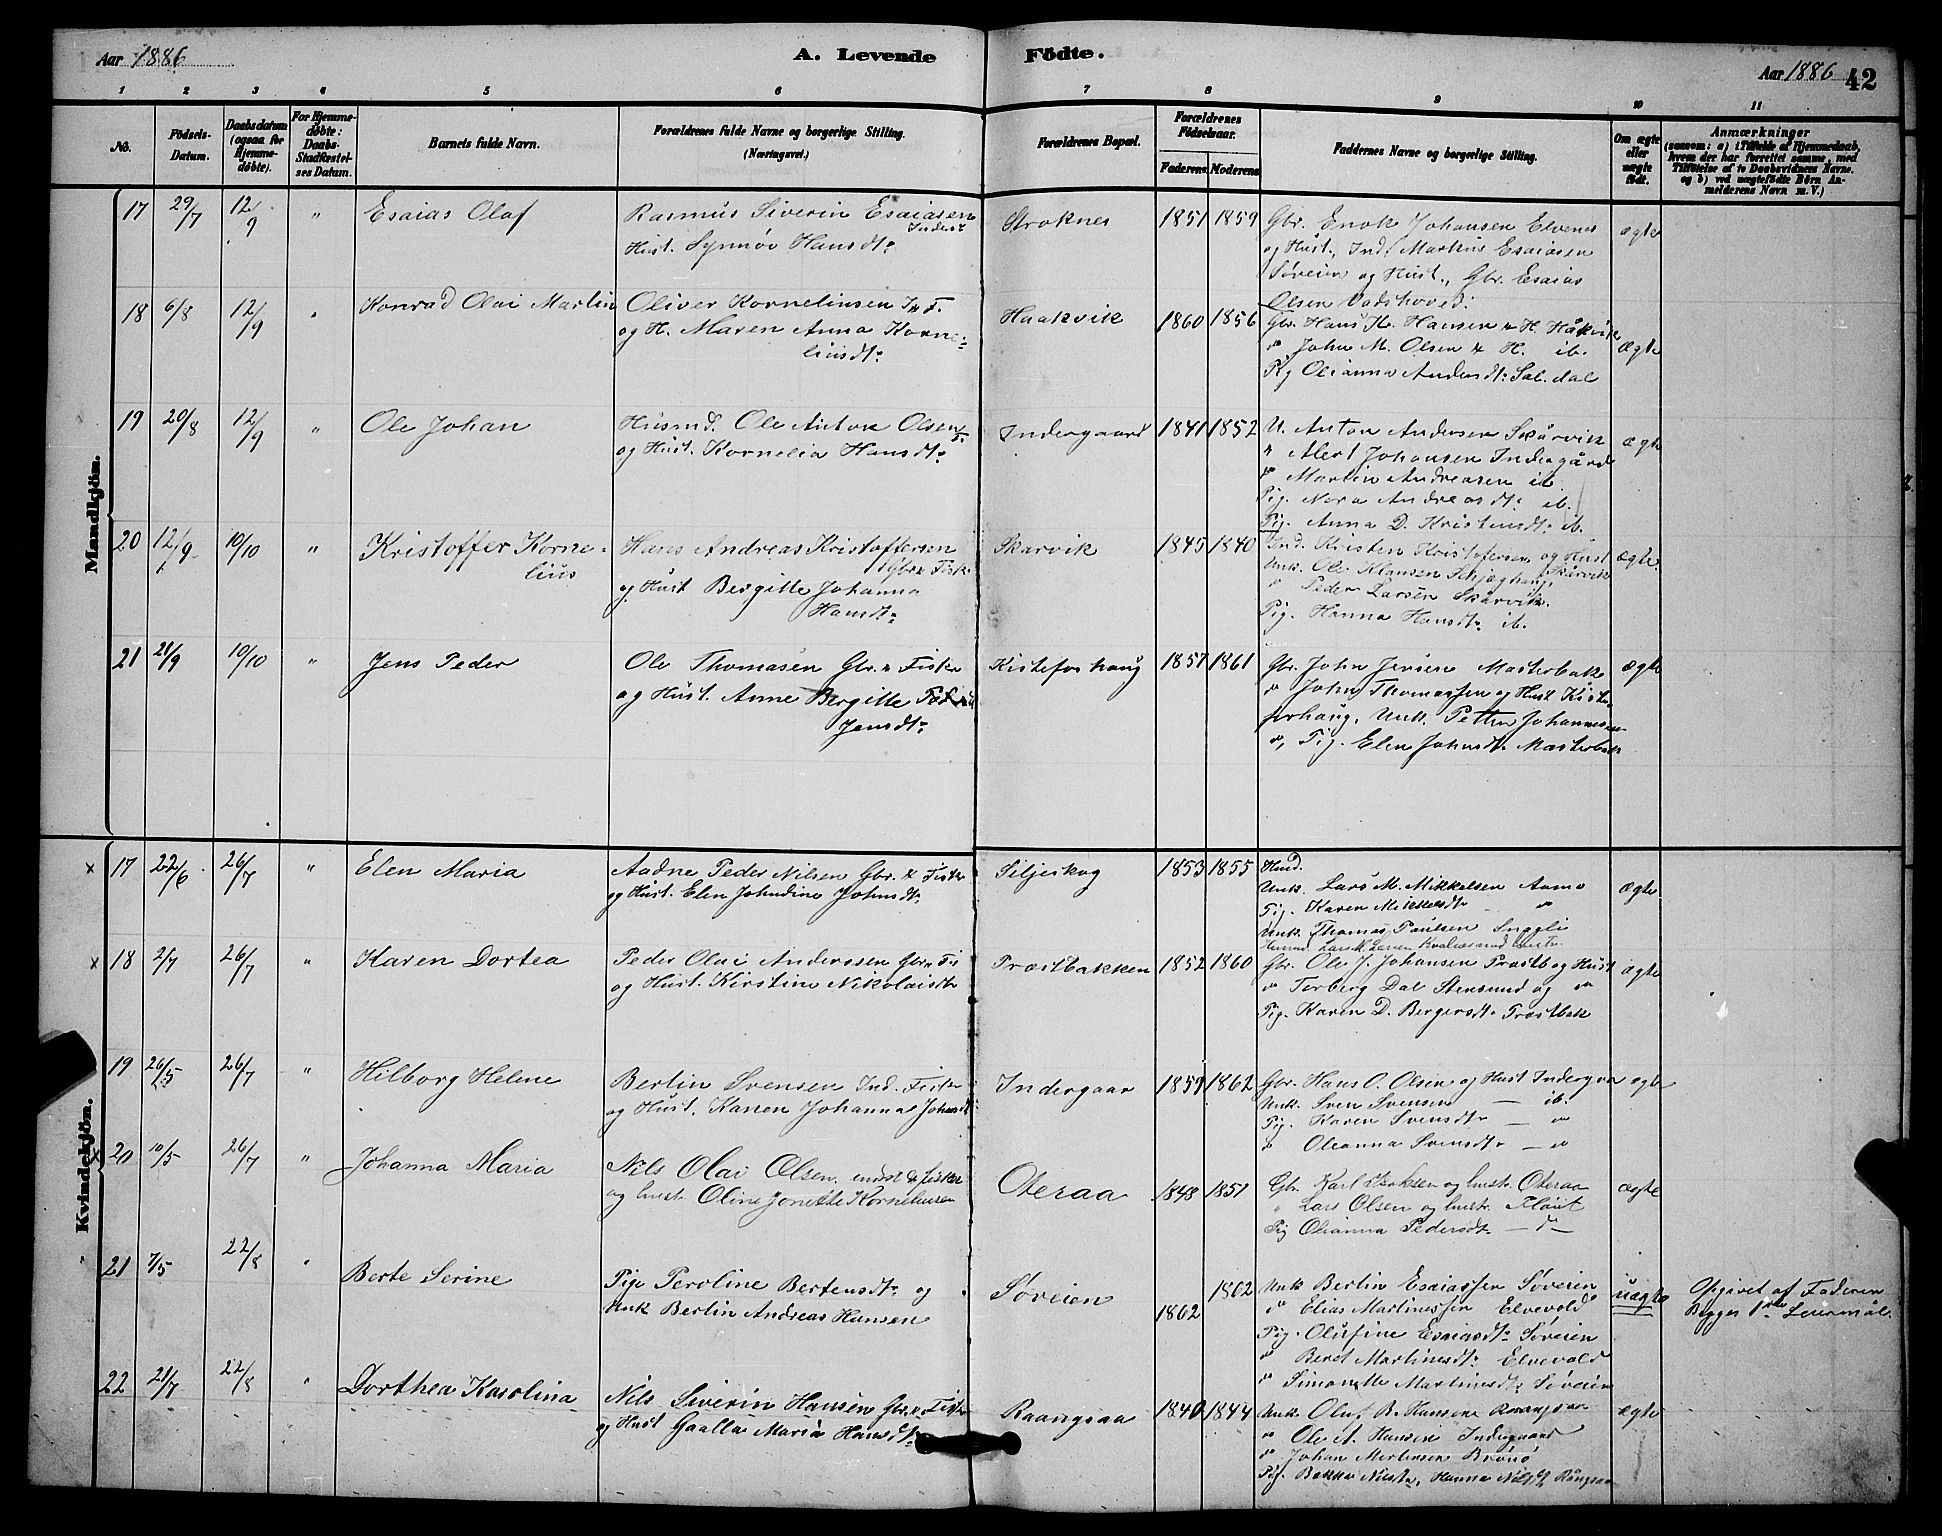 Aar 1886
A. Levende Födte.
Aar 1886
42
1 2 3 4 5 6 7 8 9 10 11
No.
Födsels-Datum.
Daabsdatum (ogsaa for Hjemmedøbte).
For Hjemmedøbte: Daabs-Stadfæstelses Datum.
Barnets fulde Navn.
Forældrenes fulde Navne og borgerlige Stilling. (Næringsvei.)
Forældrenes Bopæl.
Forældrenes Fødselsaar.
Faderens Moderens
Faddernes Navne og borgerlige Stilling.
Om ægte eller uægte født.
Anmærkninger
(saasom: a) i Tilfælde af Hjemmedaab, hvem der har forrettet samme, med Tilføielse af to Daabsvidners Navne, og b) ved uægtefødte Børn Anmelderens Navn m. V.)
Mandkjön.
17 29/7 12/9 " Esaias Olaf
Rasmus Siverin Esaiasen Inderst
Hust. Synnøv Hansdt.
Stroknes 1851 1859
Gbr. Enok Johansen Elvenes
og Hust., Ind. Markus Esaiasen
Søveien og Hust., Gbr. Esaias
Olsen Vadshoved.
ægte
18 6/8 12/9 " Konrad Olai Martin
Oliver Kornelinsen Ind. F.
og H. Maren Anna Korne-
liusdt.
Haakvik 1860 1856
Gbr. Hans K. Hansen & H. Håkvik
" John M. Olsen & H. ib.
Pig Olianna Andersdt. Sal.dal
ægte
19 20/8 12/9 " Ole Johan
Husmd. Ole Anton Olsen F.
og Hust. Kornelia Hansdt.
Indergaard 1841 1852
U. Anton Andersen Skårvik
" Alert Johansen Indergård
" Martin Andreasen ib
Pig. Nora Andreasdt. ib.
Pig. Anna D. Kristensdt. ib.
ægte
20 12/9 10/10 " Kristoffer Korne-
lius
Hans Andreas Kristoffersen
Gbr & Fisk.
og Hust Bergitte Johanna
Hansdt.
Skarvik 1845 1840
Ind. Kristen Kristofersen og Hust
Skårvik
Unk. Ole Klausen Skjæghaug
" Peder Larsen Skårvik.
Pig. Hanna Hansdt. ib.
ægte.
21 21/9 10/10 " Jens Peder
Ole Thomasen Gbr. & Fisker
og Hust. Anne Bergitte
Jensdt.
Kistefoshaug 1857 1861
Gbr. John Jensen Masterbak
" John Thomassen og Hust Kiste-
foshaug, Unk. Petter Johannesen
", Pig. Elen Johnsdt. Masterbak
ægte
Kvindekjön.
x 17 22/6 26/7 " Elen Maria
Aadne Peder Nilsen Gbr. & Fisker
og Hust. Elen Johndine Johnsdt.
Siljeskog 1853 1855
Husd.
Unk. Lars M. Mikkelsen Aamo
Pig. Karen Mikkelsdt. "
Unk. Thomas Paulsen Snggli
ægte
x 18 2/7 26/7 " Karen Dortea
Peder Olai Anderssen Gbr. Fis
og Hust. Kirstine Nikolaisdt.
Præstbakken 1852 1860
Gbr. Ole J. Johansen Præstb og Hust
" Torberg Dal Stensund og "
Pig. Karen D. Bergersdt. Præstbak
ægte
19 26/5 26/7 " Hilborg Helene
Bertin Svensen Ind. Fisker
og Hust. Karen Johanna Johansdt.
Indergaar 1859 1862
Gbr. Hans O. Olsen og Hust Indergaar
Unk. Sven Svensen — ib.
Pig. Karen Svensdt. — "
" Oleanna Svensdt. — "
ægte
x 20 10/5 26/7 " Johanna Maria
Nils Olai Olsen, inderst & fisker
og hustr. Oline Jonette Korneliusen
Oteraa 1848 1851
Gbr Karl Isaksen og hustr. Oteraa
" Lars Olsen og hustr. Flaut
Pig Olianna Pedersdt. — " —
ægte
21 7/5 22/8 " Berte Serine
Pige Peroline Bertensdt. og
Unk Bertin Andreas Hansen
Søveien 1862 1862
Unk Bertin Esaiassen Søveien
" Elias Martinessen Elvevold
Pig. Olufine Esaiasdt. Søveien
" Beret Martinesdt. Elvevold
" Simonette Martinesdt. Søveien
uægte
Opgivet af Faderen
Begges 1ste Leiermål.
22 21/7 22/8 " Dorthea Karolina
Nils Siverin Hansen Gbr. & Fisker
og Hust Gaalla Maria Hansdt.
Raangsaa 1840 1844
Unk. Oluf B. Hansen Raangsaa
" Ole A. Hansen Indergaard
" Johan Mortensen Brønø
Pig. Bakka Nilsdt., Hanna Nilsdt. Rångsaa
ægte